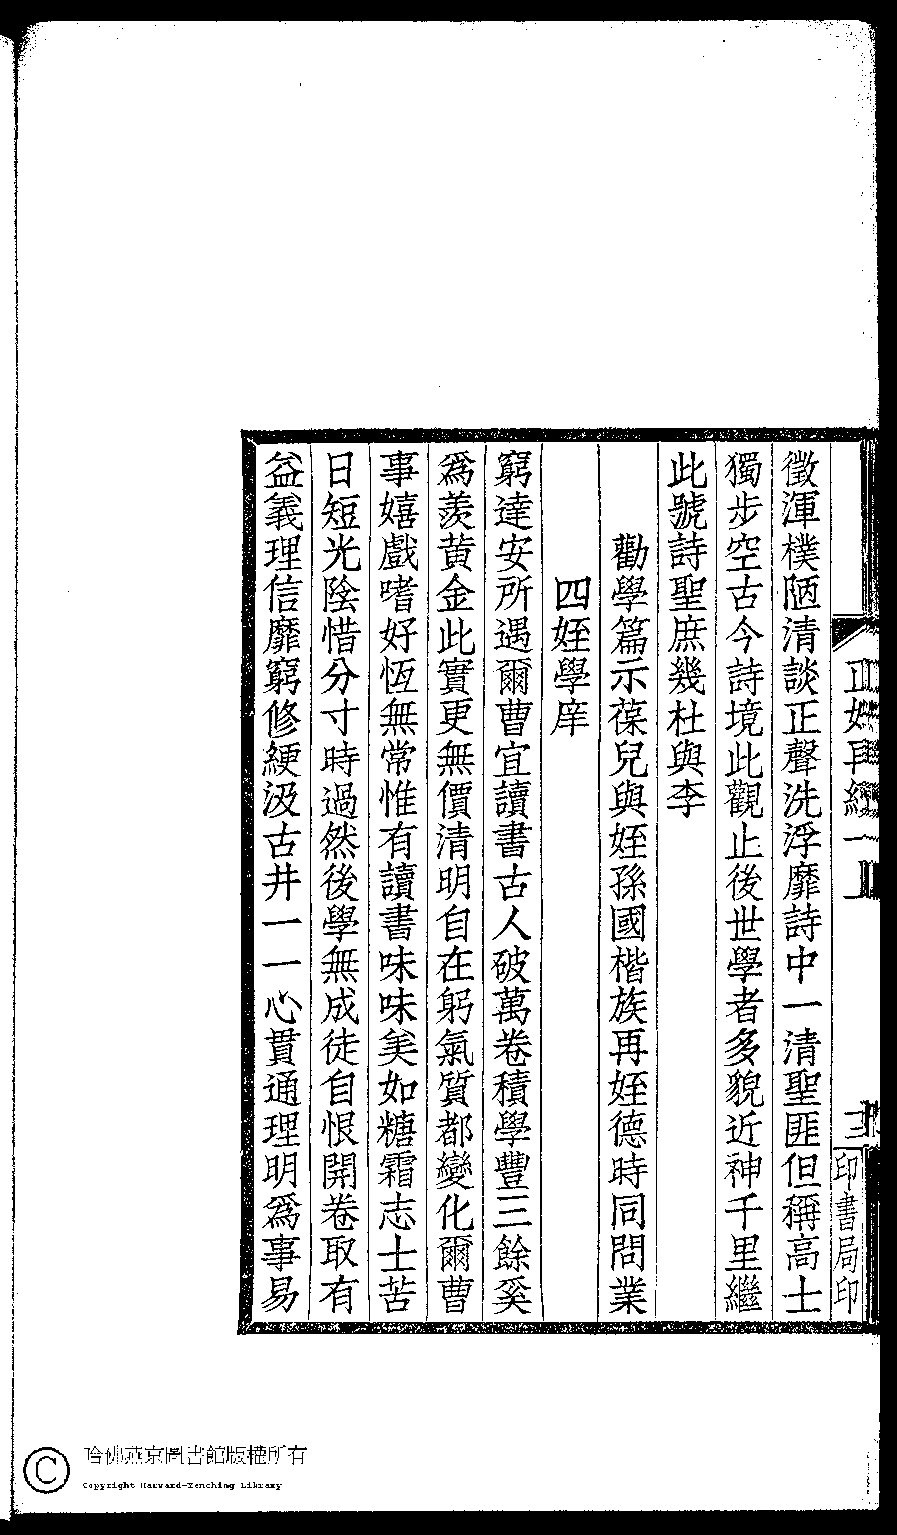 徵渾樸陋清談正聲洗浮靡詩中一清聖匪但稱高士
獨步空古今詩境此觀止後世學者多貌近神千里繼
此號詩聖庶幾杜與李
勸學篇示葆兒與姪孫國楷族再姪德時同問業
四姪學庠
窮達安所遇爾曹宜讀書古人破萬卷積學豐三餘奚
為羨黃金此實更無價清明自在躬氣質都變化爾曹
事嬉戲嗜好恆無常惟有讀書味味美如糖霜志士苦
日短光陰惜分寸時過然後學無成徒自恨開卷取有
益義理信靡窮修綆汲古井一一心貫通理明為事易
印書局印
哈佛燕京圖書館版權所有
Copyright Harvard-Yenching Library